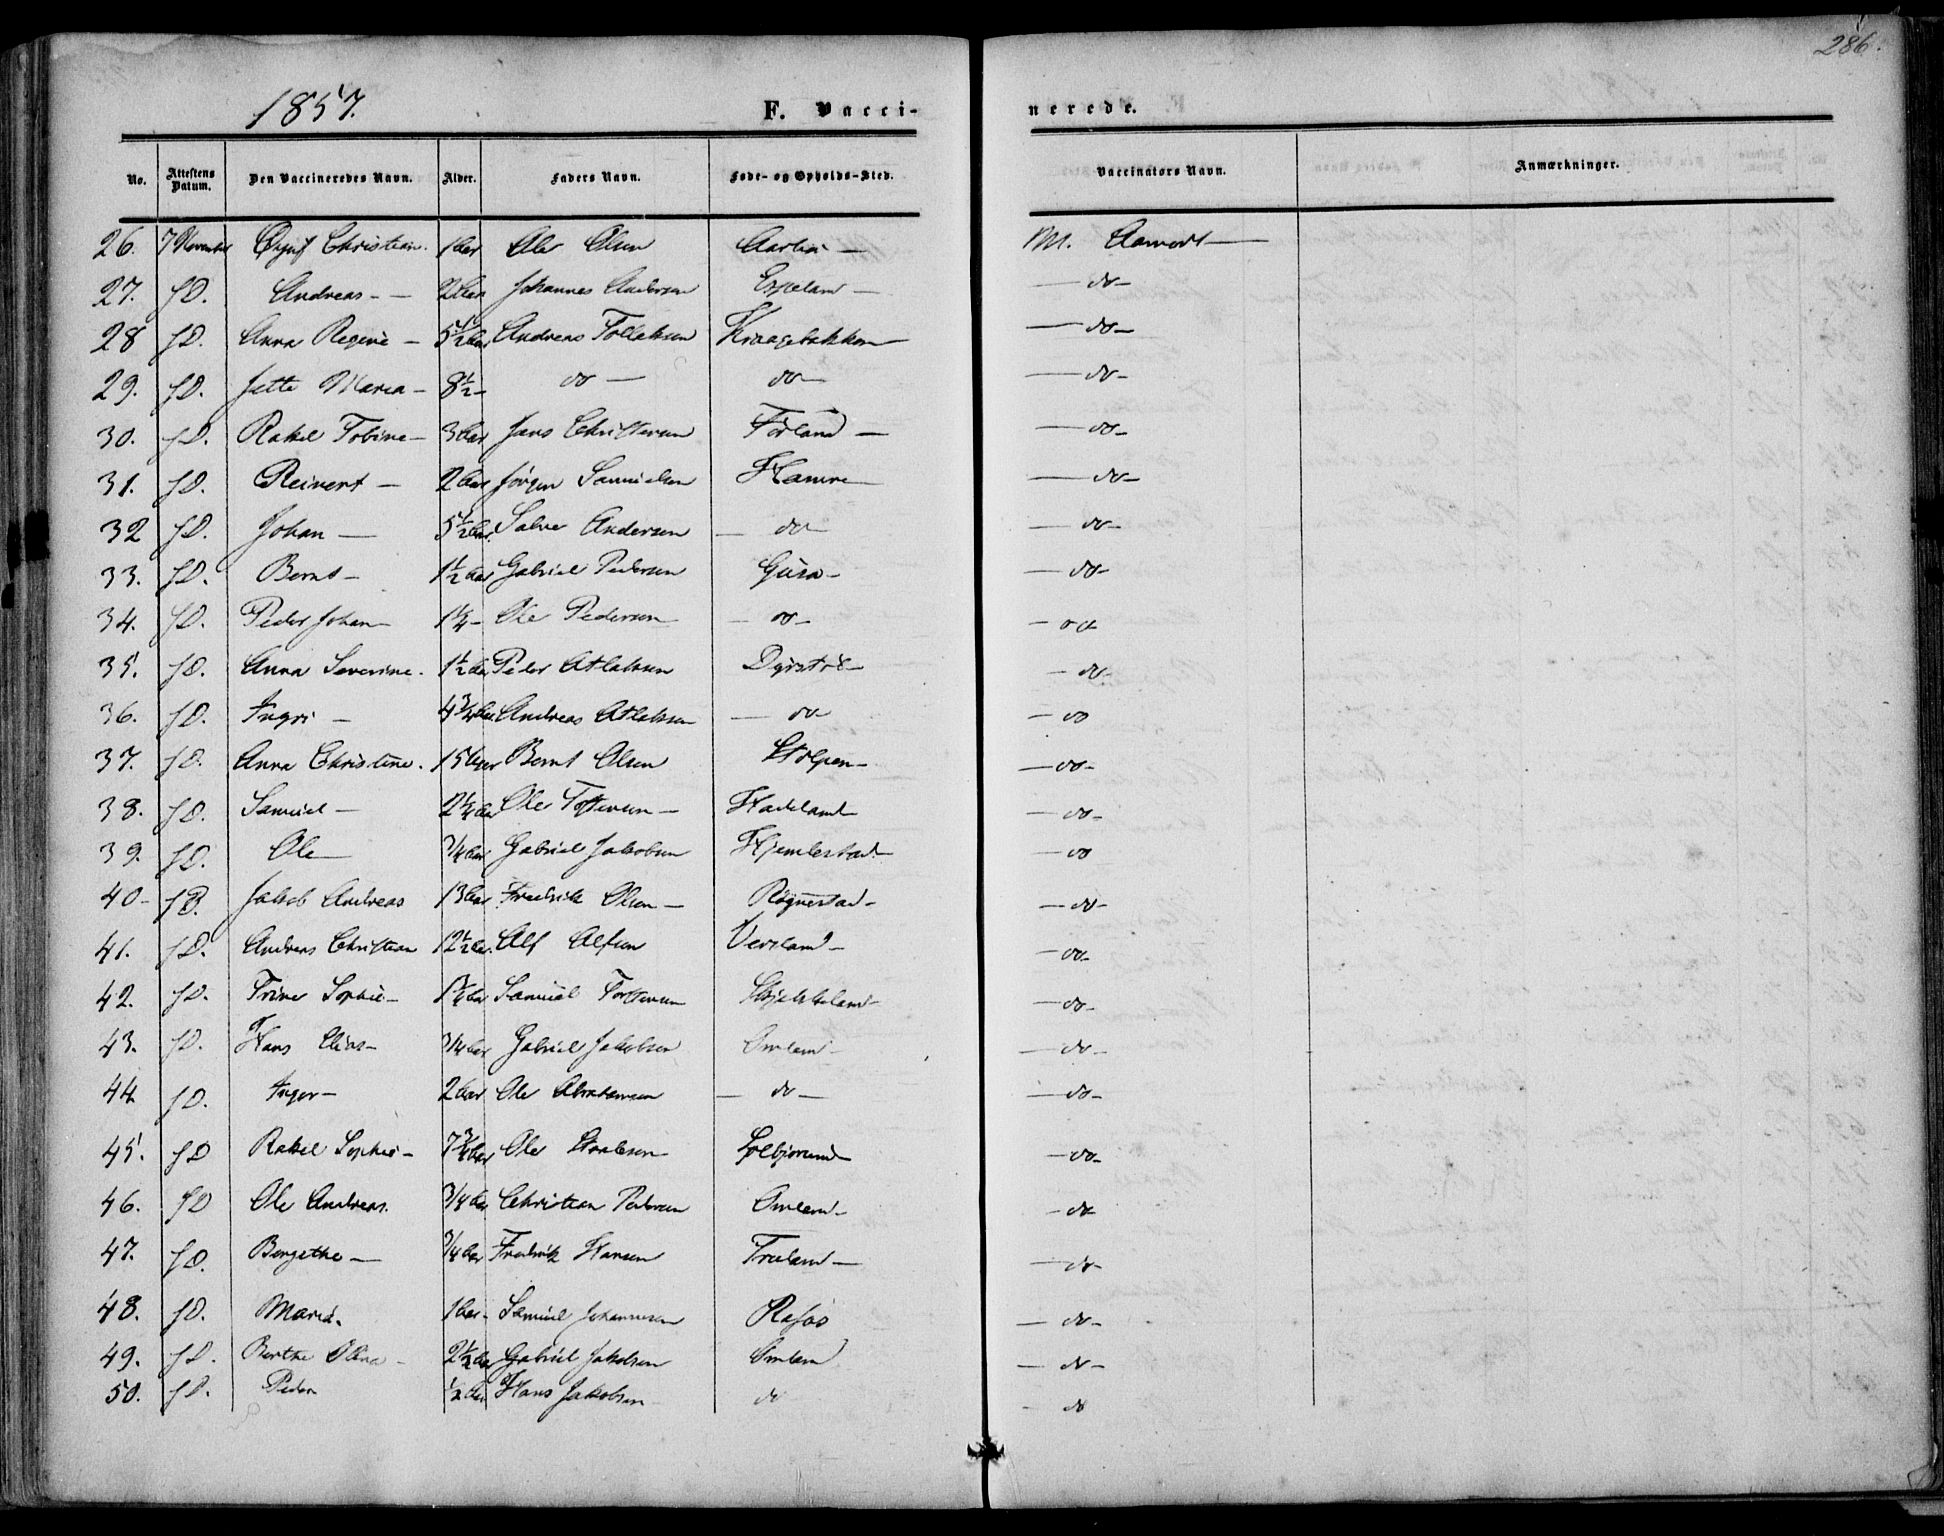 286.
1857.
F. Vacci- nerede.
No. Attestens Datum. Den Vaccineredes Navn. Alder. Faders Navn. Føde- og Opholds-Sted. Vaccinators Navn. Anmærkninger.
26. 7 November Christian. 1 Aar Ole Olsen M. Aamodt
27. f D. Andreas 2 Aar Johannes Andersen Espeland do
28 f D. Anna Regine 5 1/2 Aar Andreas Tollaksen Kraagebakken do
29. f D. Jette Maria 8 1/2 do do do
30. f D. Rakel Tobine 3 Aar Jens Christensen Førland do
31. f D. Reinert 2 Aar Jørgen Samuelsen Hamre do
32 f D. Johan 5 1/2 Aar. Salve Andersen do do
33. f D. Bernt 1 1/2 Aar Gabriel Pedersen do
34. f D. Peder Johan Ole Pedersen do do
35. f D. Anna Severine. 1 1/2 Aar Peder Atlaksen do
36. f D. Ingri 4 3/4 Aar Andreas Atlaksen do do
37. f D. Anna Christine. 15 Aar Bernt Olsen Stolpen do
38. f D. Samuel 2 1/4 Aar Ole Tostensen Hadeland do
39. f D. Ole 3/4 Aar Gabriel Jakobsen Hjemlestad do
40 f D. Jakob Andreas 13 Aar Fredrik Olsen Røgnestad do
41. f D. Andreas Christian 12 1/2 Aar. Alf Alfsen Versland do
42. f D. Trine Sophie Samuel Tostensen do
43. f D. Hans Elias 3/4 Aar Gabriel Jakobsen Omland do
44 f D. Inger 2 Aar Ole Abrahamsen do do
45. f D Rakel Sophie 7 3/4 Aar Ole do
46. f D Ole Andreas. 3/4 Aar Christian Pedersen Omland do
47. f D. Bergethe 3/4 Aar Fredrik Hansen Treland do
48. f D. Maria. 1 Aar. Samuel Johannesen Rafos do
49. f D. Berthe Olena 2 1/2 Aar Gabriel Jakobsen Omland do
50. f D. Peder 1/2 Aar Hans Jakobsen do do